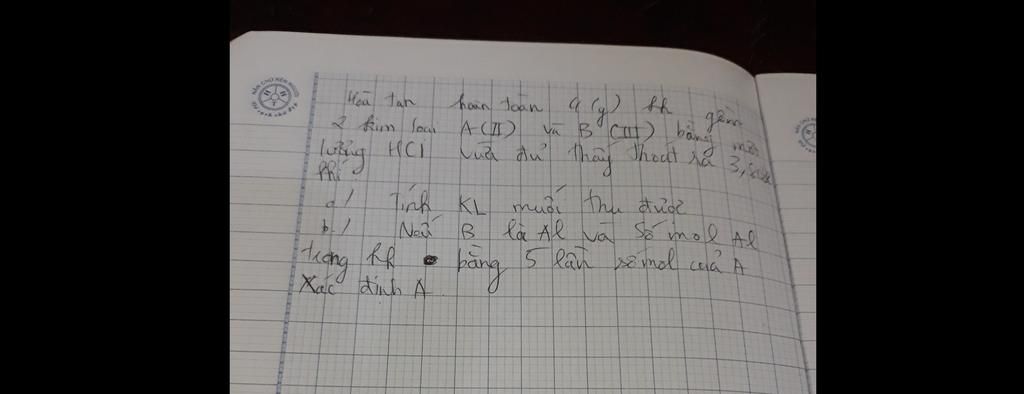 Hoà tan hoàn toàn 4 (g) hh gồm
2 kim loại A(II) và B (III) bằng một
lượng HCl vừa đủ thấy thoát ra 3,
khí
a / Tính KL muối thu được
b / Nếu B là Al và số mol Al
trong hh bằng 5 lần số mol của A
Xác định A